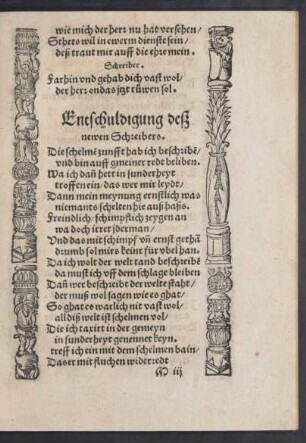 wie mich der herꝛ nu hat versehen/
Sthets wil in ewerm dienste sein/
deß traut mir auff die ehre mein.
Schꝛeiber.
Farhin vnd gehab dich vast wol/
der herꝛ ondas jtzt rüwen sol.
Entschuldigung deß
newen Schꝛeibers.
Die schelmē zunfft hab ich beschꝛibē/
vnd bin auff gmeiner redt beliben.
Wa ich dañ hett in sunderheyt
troffen ein/ das wer mir leydt/
Dann mein meynung ernstlich was
niemants schelten hie auß haß.
Freindlich/ schimpflich zeygen an
wa doch irret jderman/
Vnd das mit schimpf vñ ernst gethā
drumb sol mirs keint für vbel han.
Da ich wolt der welt tand beschꝛeibē
da must ich vff dem schlage bleiben
Dañ wer beschꝛeibt der welte staht/
der muß wol sagen wie es ghat/
So ghat es warlich nit vast wol/
all diß welt ist schelmen vol/
Die ich taxirt in der gemeyn
in sunderheyt genennet keyn.
treff ich ein mit dem schelmen bain/
Das er mit fluchen widerꝛedt
iij